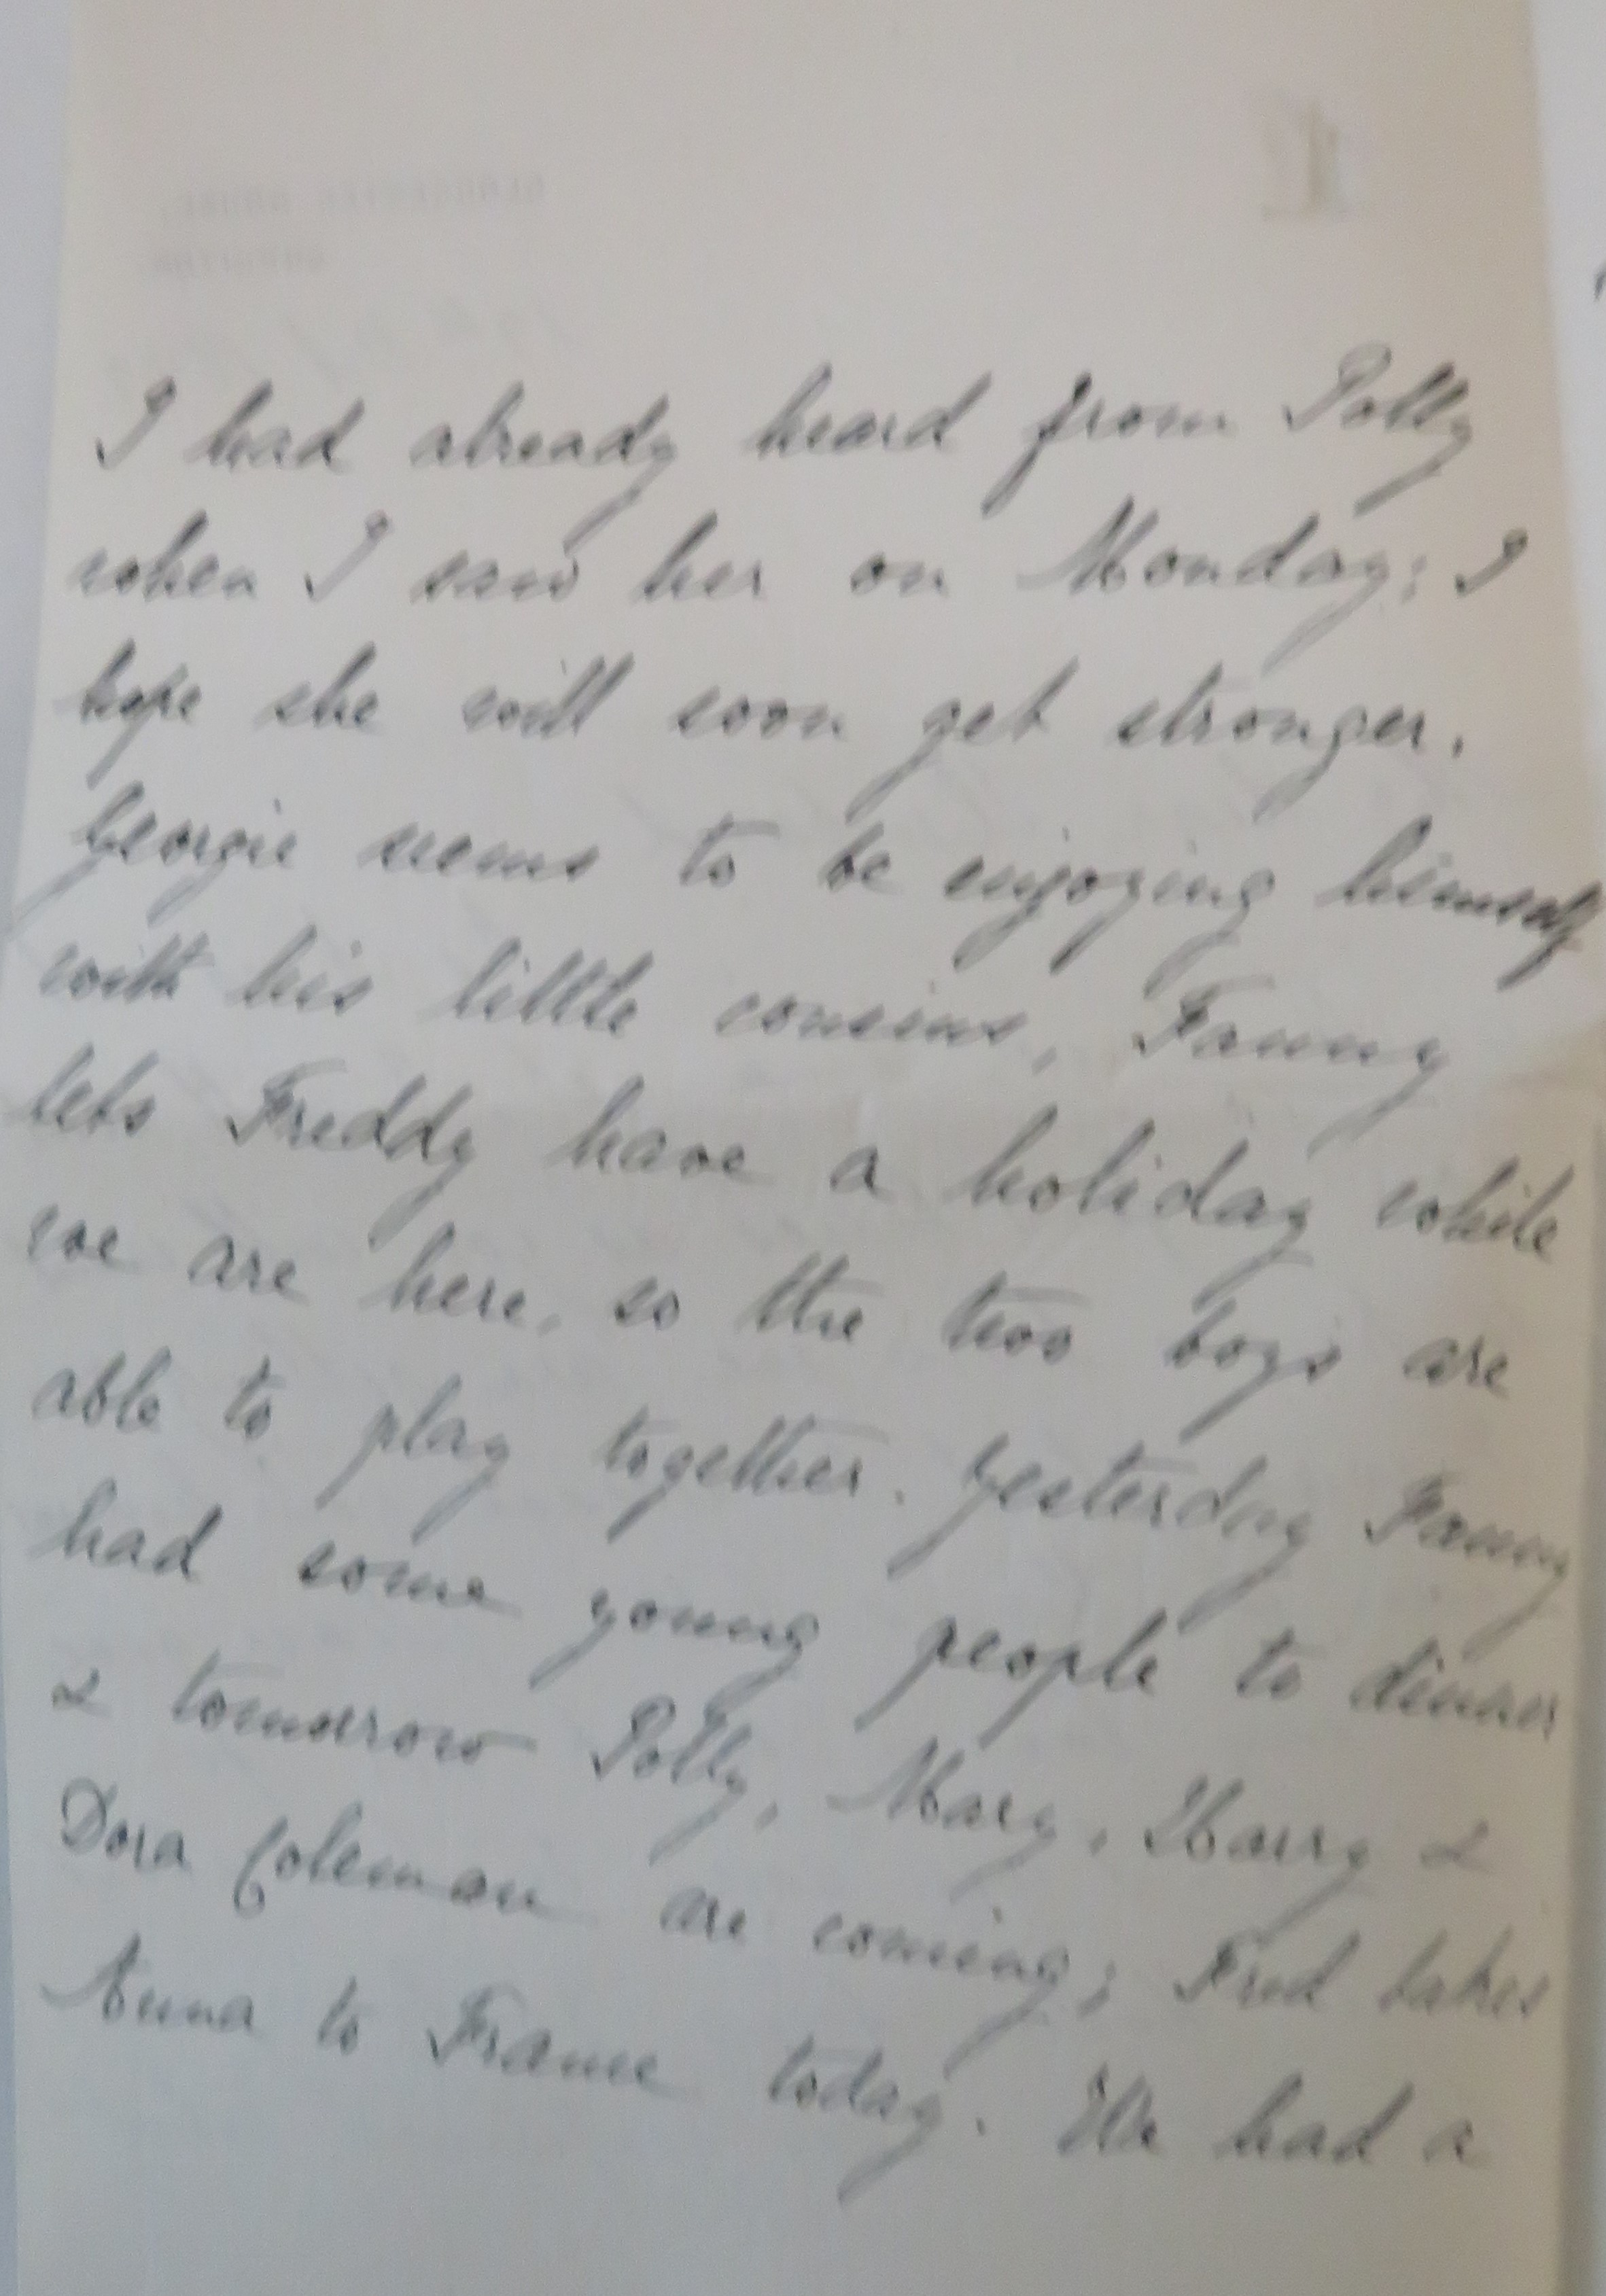 I had already heard from Polly
when I saw her on Monday; I
hope she will soon get stronger.
Georgie seems to be enjoying himself
with his little cousins, Fanny
lets Freddy have a holiday while
we are here, so the two boys are
able to play together. Yesterday Fanny
had some young people to dinner
& tomorrow Polly, Mary, Harry &
Dora Coleman are coming; Fred takes
Anna to Frame today. We had a